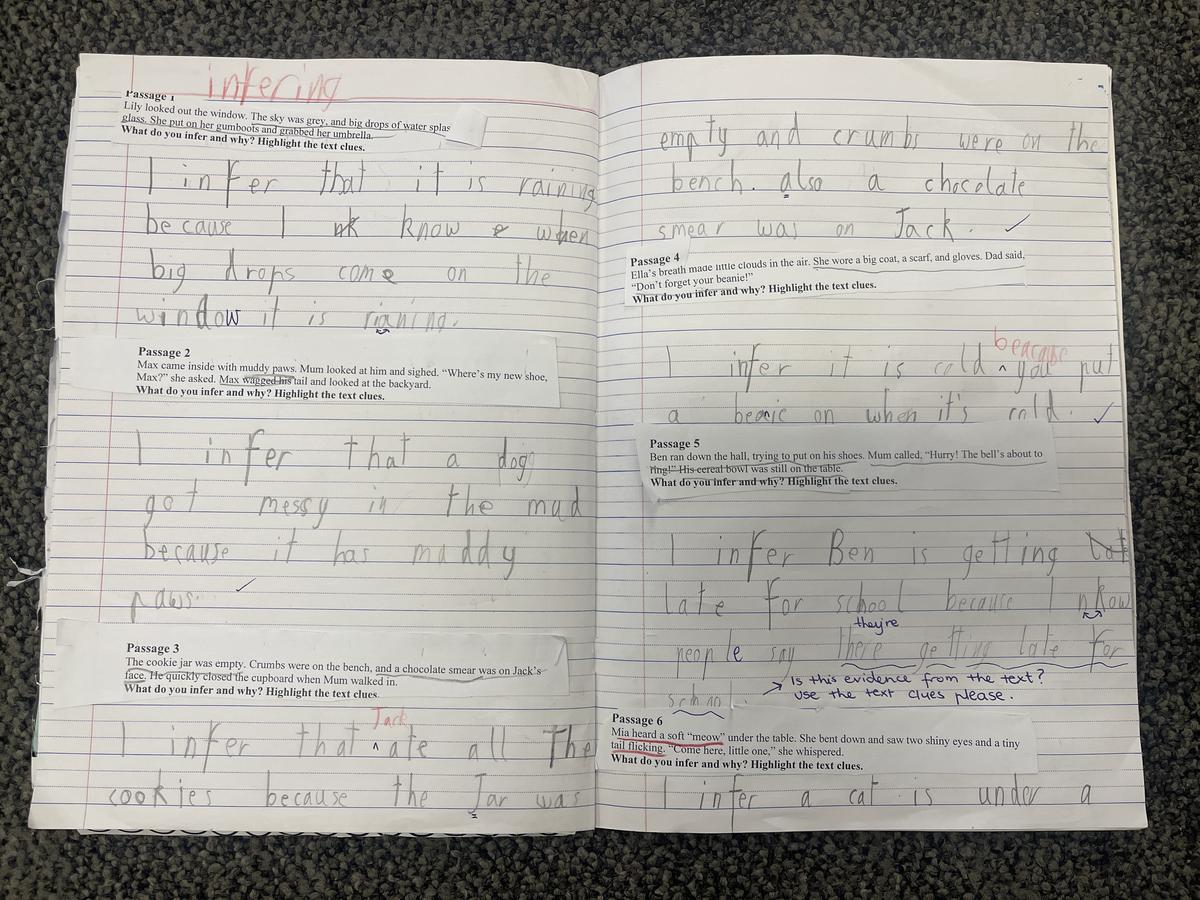 infering
Passage 1
Lily looked out the window. The sky was grey, and big drops of water splas
glass. She put on her gumboots and grabbed her umbrella.
What do you infer and why? Highlight the text clues.
I infer that it is raining
because I nk know e when
big drops come on the
window it is rianing.
Passage 2
Max came inside with muddy paws. Mum looked at him and sighed. "Where's my new shoe,
Max?" she asked. Max wagged his tail and looked at the backyard.
What do you infer and why? Highlight the text clues.
I infer that a dog
got messy in the mud
because it has muddy
paws.
Passage 3
The cookie jar was empty. Crumbs were on the bench, and a chocolate smear was on Jack's
face. He quickly closed the cupboard when Mum walked in.
What do you infer and why? Highlight the text clues.
Jack
I infer that ^ ate all The
cookies because the Jar was
empty and crumbs were on the
bench. also a chocolate
smear was on Jack.
Passage 4
Ella's breath made little clouds in the air. She wore a big coat, a scarf, and gloves. Dad said,
"Don't forget your beanie!"
What do you infer and why? Highlight the text clues.
I infer it is cold ^ you put
a beanie on when it's cold.
Passage 5
Ben ran down the hall, trying to put on his shoes. Mum called, "Hurry! The bell's about to
ring!" His cereal bowl was still on the table.
What do you infer and why? Highlight the text clues.
I infer Ben is getting
late for school because I nkow
they're
people say there getting late for
school.
Is this evidence from the text?
Use the text clues please.
Passage 6
Mia heard a soft "meow" under the table. She bent down and saw two shiny eyes and a tiny
tail flicking. "Come here, little one," she whispered.
What do you infer and why? Highlight the text clues.
I infer a cat is under a